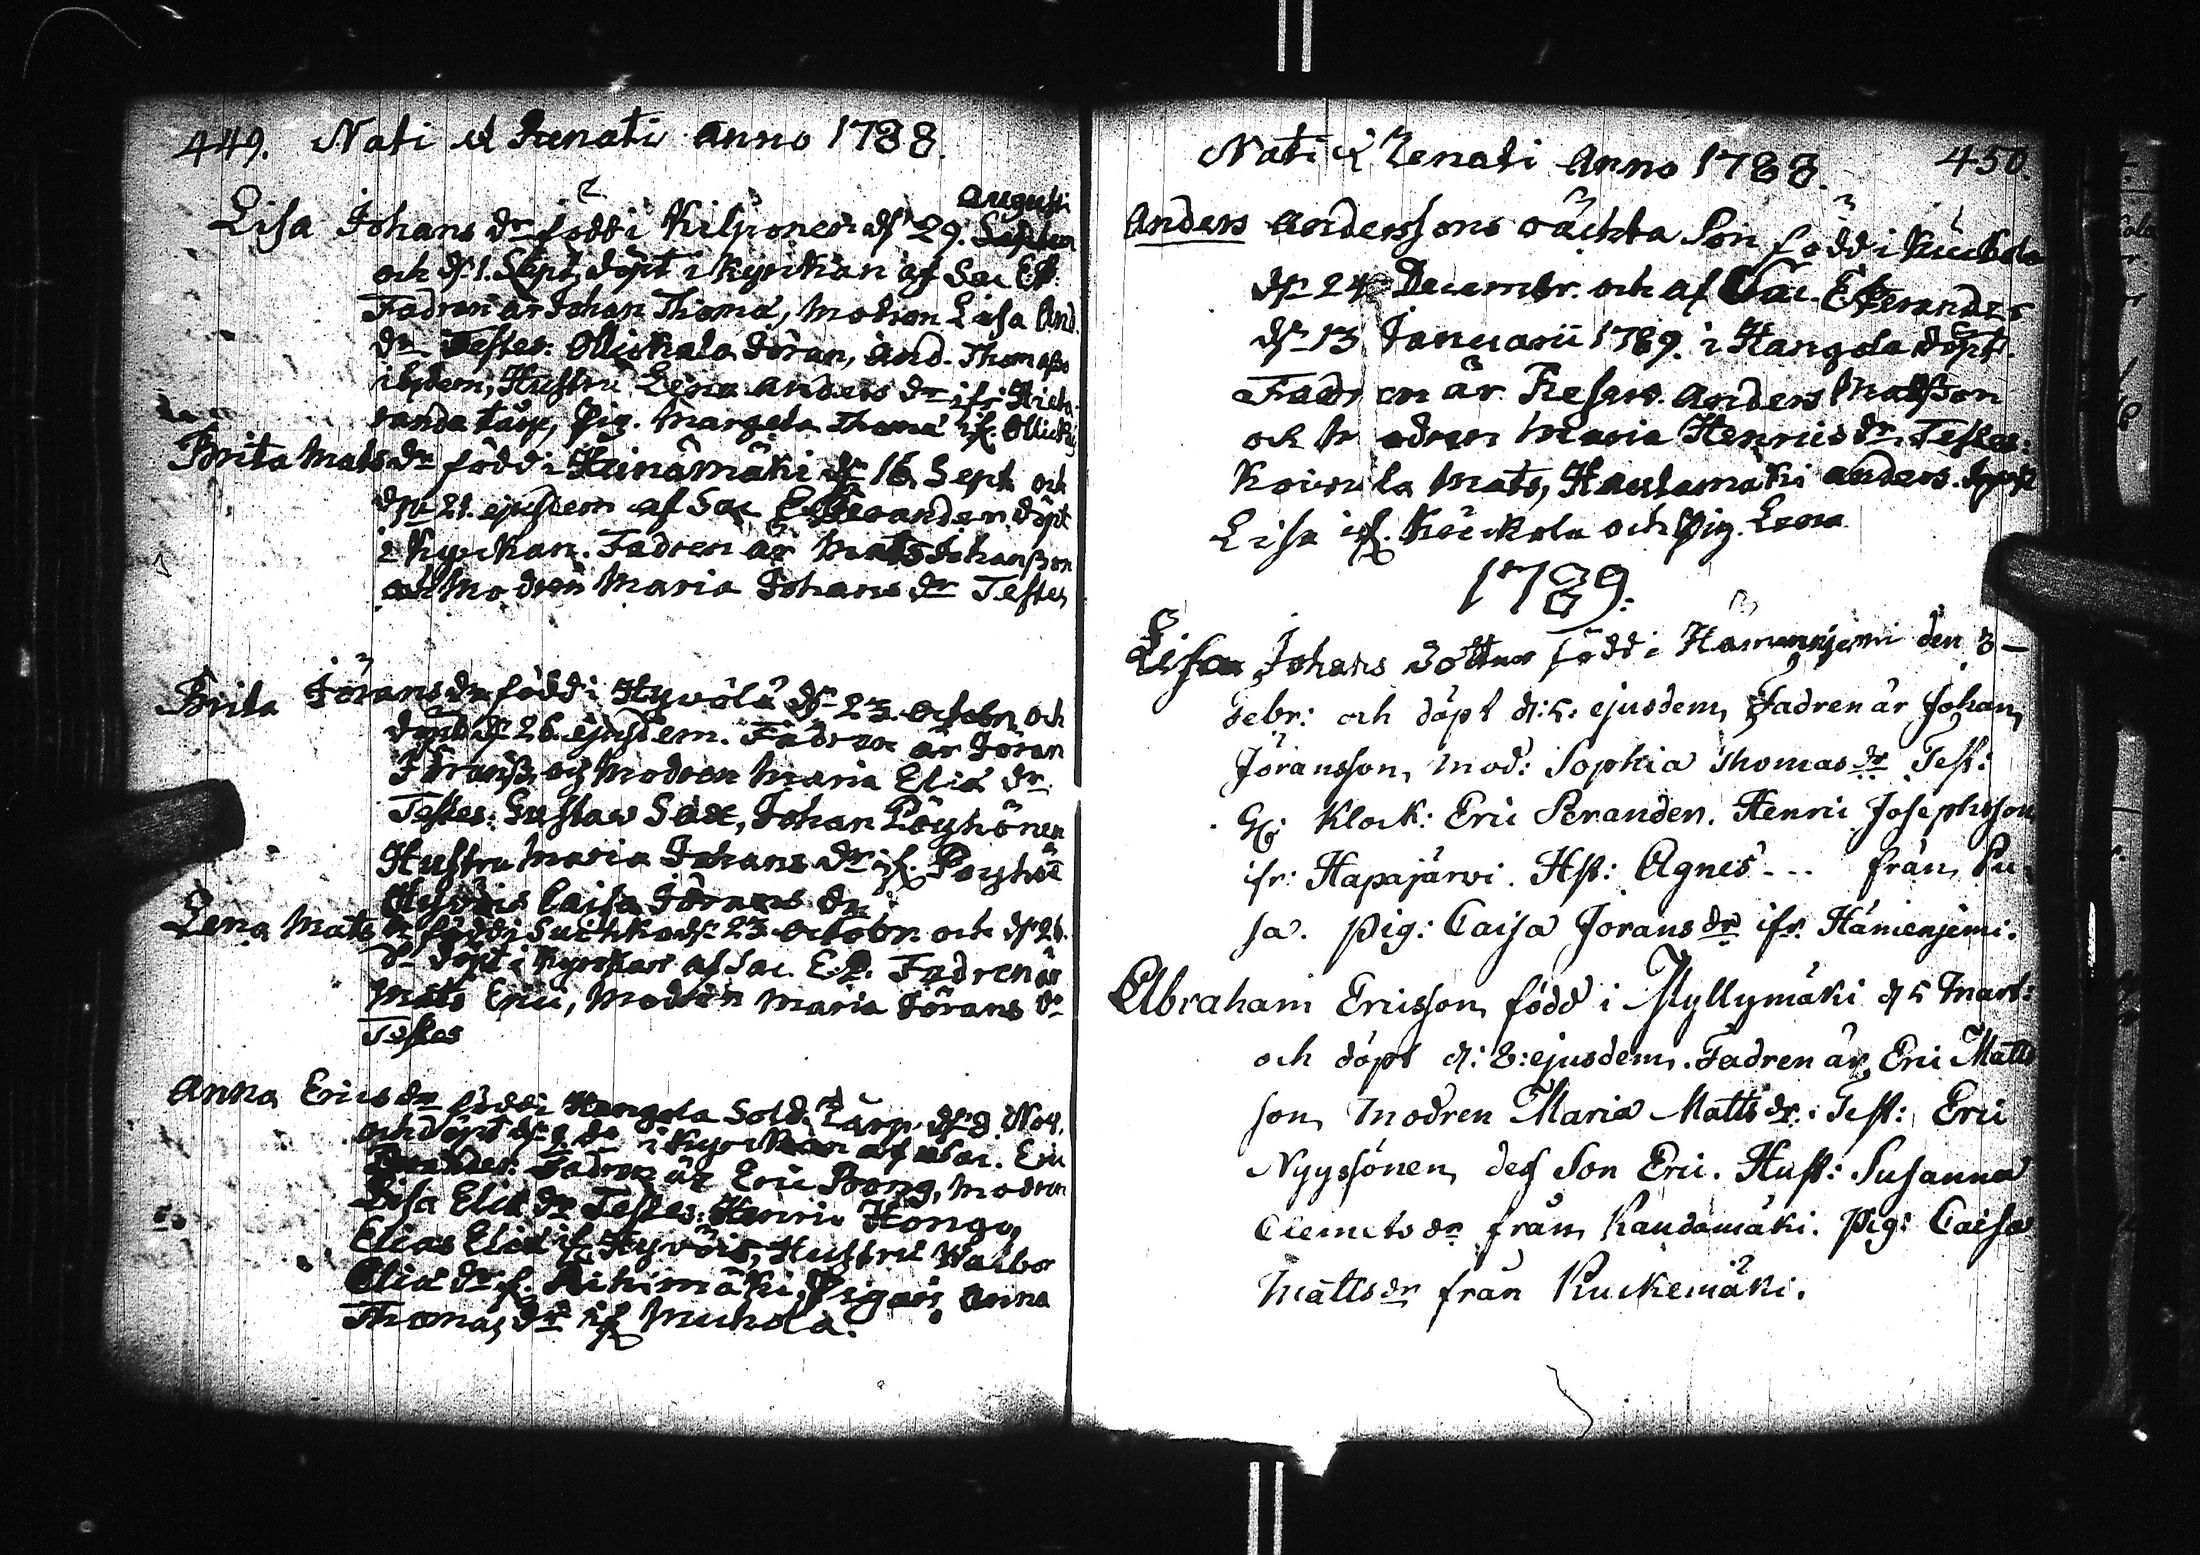 449. Nati & Renati anno 1788.
Augusti
Lisa Johans dr född i Kilponen d. 29. Septem
och d. 1. Sept. döpt i Kyrckan af Sac. E. B.
Fadren är Johan Thomæ, modren Lisa And.
dr Testes. Ollickala Jöran, And. Thomasso
ibidem, Hustru Lena Anders dr ifr. Hieta
randa , Pig. Margeta Thomæ if. Ollick
Brita Mats dr född i Heinämäki d. 16 Sept. och
d. 21. ejusdem af Sac. E. Perander döpt
i Kyrckan. Fadren är Mats Johansson
och Modren Maria Johans dr Testes
Brita Jörans dr född i Hyvölä d. 23. Octobr. och
döpt d. 26. ejusdem. Fadren är Jöran
Jöranss. och Modren Maria Eliæ dr.
Testes: Gustaw Sax, Johan Pöyhönen
Hustru Maria Johans dr if. Poyhoe
Hyvöis Caisa Jörans dr
Lena Mats dr född i Suckko d. 23. Octobr. och d. 26.
do döpt i Kyrckan af Sac. E. P. Fadren är
Mats Erici, Modren Maria Jörans dr
Testes
Anna Erics dr född i Kangola Sold. Tårp. d. 9. Nov.
och döpt d. 9. do i Kyrckan af Sac. Eric
Perander. Fadren är Eric Bong, modren
Lisa Eliæ dr Testes: Henric Hongo,
Elias Eliæ if. Hyvöis, Hustru Walbor
Eliæ dr f. Rihimäki, Pigan Anna
Thomas dr if. Muhola.
Nati & Renati Anno 1788. 450.
Anders Anderssons oäckta Son född i Kuckola
d. 24 Decembr. och af Sac. E. Perander
d. 13 Januarii 1789. i Kangola döpt.
Fadren är Reserv. Anders Matsson
och Modren Maria Henrics dr. Testes:
Koivula Mats, Hautamäki Anders. 
Lisa if. Köckola och Pig. Lena
1789.
Lisa Johans dotter född i Hämenjemi den 3 -
Febr: och döpt d: 5: ejusdem, Fadren är Johan
Jöransson, Mod: Sophia Thomas dr Test:
 Klock: Eric Peranden. Henric Josephsson
ifr: Hapajärvi. Hst: Agnes - . . från Pu
sa. Pig: Caisa Jorans dr ifr. Hämenjemi.
Abraham Ericsson, född i Myllymäki d 5 Mart:
och döpt d: 8: ejusdem. Fadren är Eric Matts
son, Modren Maria Matts dr: Test: Eric
Nyyssönen, des Son Eric. Hust: Susanna
Clemets dr från Raudamäki. Pig: Caisa
Matts dr från Ruckemäki.